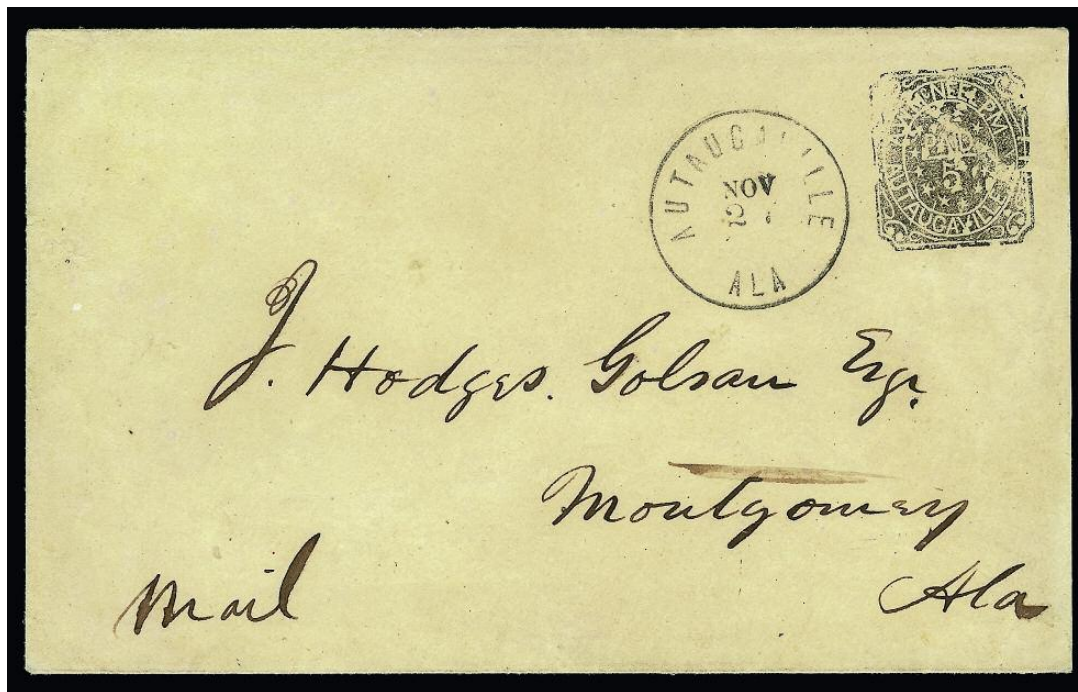 AUTAUGAVILLE
NOV
ALA
PAID
5
AUTAUGAVILLE
J. Hodges. Golsan Esqr.
Montgomery
Ala
Mail